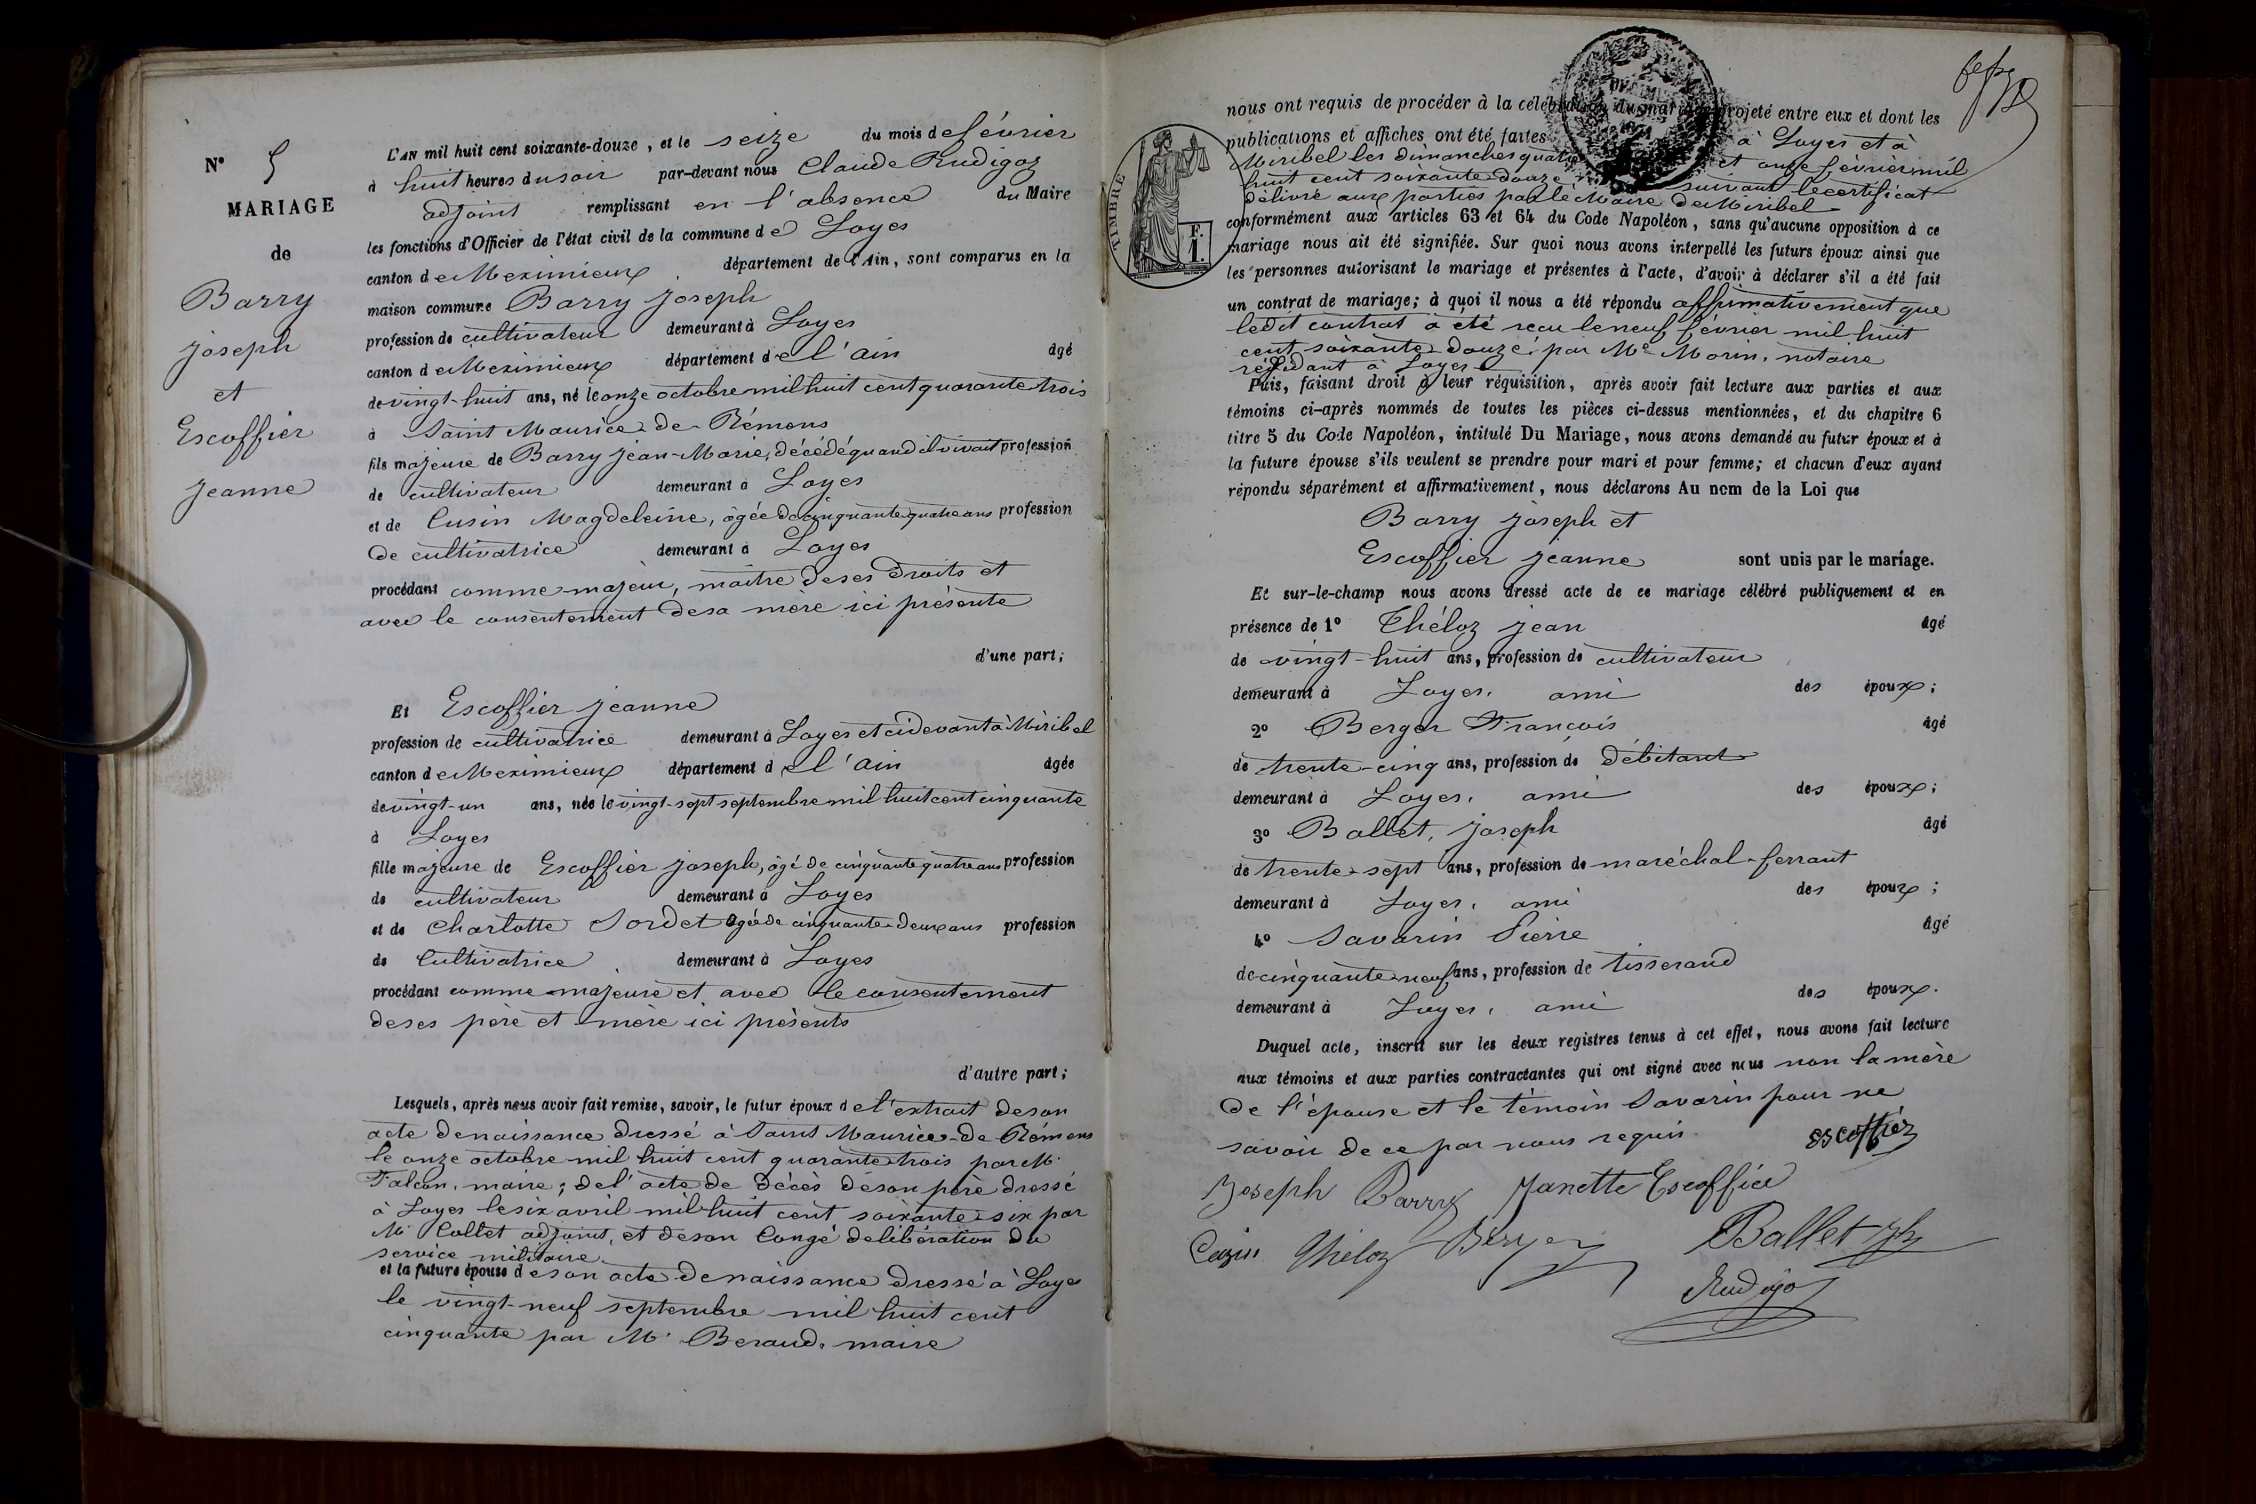 N° 5
MARIAGE
de
Barry
Joseph
et
Escoffier
Jeanne
L'AN mil huit cent soixante-douze, et le seize du mois de février
à huit heures du soir par-devant nous Claude Rudigoz
adjoint remplissant en l'absence du Maire
les fonctions d'Officier de l'état civil de la commune de Loyes
canton de Meximieux, département de l'Ain, sont comparus en la
maison commune Barry Joseph
profession de cultivateur demeurant à Loyes
canton de Meximieux département de l'ain âgé
de vingt-huit ans, né le onze octobre mil huit cent quarante trois
à Saint Maurice de Rémens
fils majeure de Barry Jean-Marie, décédé quand il vivait profession
de cultivateur demeurant à Loyes
et de Cusin Magdeleine, âgée de cinquante quatre ans profession
de cultivatrice demeurant à Loyes
procédant comme majeur, maître de ses droits et
avec le consentement de sa mère ici présente
d'une part;
Et Escoffier Jeanne
profession de cultivatrice demeurant à Loyes et cidevant à Miribel
canton de Meximieux département de l'ain âgée
de vingt-un ans, née le vingt-sept septembre mil huit cent cinquante
à Loyes
fille majeure de Escoffier Joseph, âgé de cinquante quatre ans profession
de cultivateur demeurant à Loyes
et de Charlotte Sordet âgée de cinquante-deux ans profession
de Cultivatrice demeurant à Loyes
procédant comme majeure et avec le consentement
de ses père et mère ici présents
d'autre part;
Lesquels, après nous avoir fait remise, savoir, le futur époux de l'extrait de son
acte de naissance dressé à Saint Maurice-de-Rémens
le onze octobre mil huit cent quarante trois par M.
Falcon, maire; de l'acte de décès de son père dressé
à Loyes le six avril mil huit cent soixante-six par
M. Collet adjoint, et de son Congé de libération du
service militaire
et la future épouse de son acte de naissance dressé à Loyes
le vingt-neuf septembre mil huit cent
cinquante par M. Beraud, maire
nous ont requis de procéder à la célébration du mariage projeté entre eux et dont les
publications et affiches ont été faites à Loyes et à
Miribel les dimanches quatre et onze février mil
huit cent soixante douze suivant le certificat
délivré aux parties par le Maire de Miribel
TIMBRE
F.
1.
conformément aux articles 63 et 64 du Code Napoléon, sans qu'aucune opposition à ce
mariage nous ait été signifiée. Sur quoi nous avons interpellé les futurs époux ainsi que
les personnes autorisant le mariage et présentes à l'acte, d'avoir à déclarer s'il a été fait
un contrat de mariage; à quoi il nous a été répondu affirmativement que
ledit contrat a été reçu le neuf février mil huit
cent soixante douze, par Me Morin, notaire
résidant à Loyes
Puis, faisant droit à leur réquisition, après avoir fait lecture aux parties et aux
témoins ci-après nommés de toutes les pièces ci-dessus mentionnées, et du chapitre 6
titre 5 du Code Napoléon, intitulé Du Mariage, nous avons demandé au futur époux et à
la future épouse s'ils veulent se prendre pour mari et pour femme; et chacun d'eux ayant
répondu séparément et affirmativement, nous déclarons Au nom de la Loi que
Barry Joseph et
Escoffier Jeanne sont unis par le mariage.
Et sur-le-champ nous avons dressé acte de ce mariage célébré publiquement et en
présence de 1° Théloz Jean âgé
de vingt-huit ans, profession de cultivateur
demeurant à Loyes, ami des époux;
2° Berger François âgé
de trente-cinq ans, profession de débitant
demeurant à Loyes, ami des époux;
3° Ballet, Joseph âgé
de trente-sept ans, profession de maréchal-ferrant
demeurant à Loyes, ami des époux;
4° Savarin Pierre âgé
de cinquante-neuf ans, profession de tisserand
demeurant à Loyes, ami des époux.
Duquel acte, inscrit sur les deux registres tenus à cet effet, nous avons fait lecture
aux témoins et aux parties contractantes qui ont signé avec nous non la mère
de l'épouse et le témoin Savarin pour ne
savoir de ce par nous requis
escoffier
Joseph Barry Janette Escoffier
Cuzin Théloz Berger Ballet Jh
Rudigoz